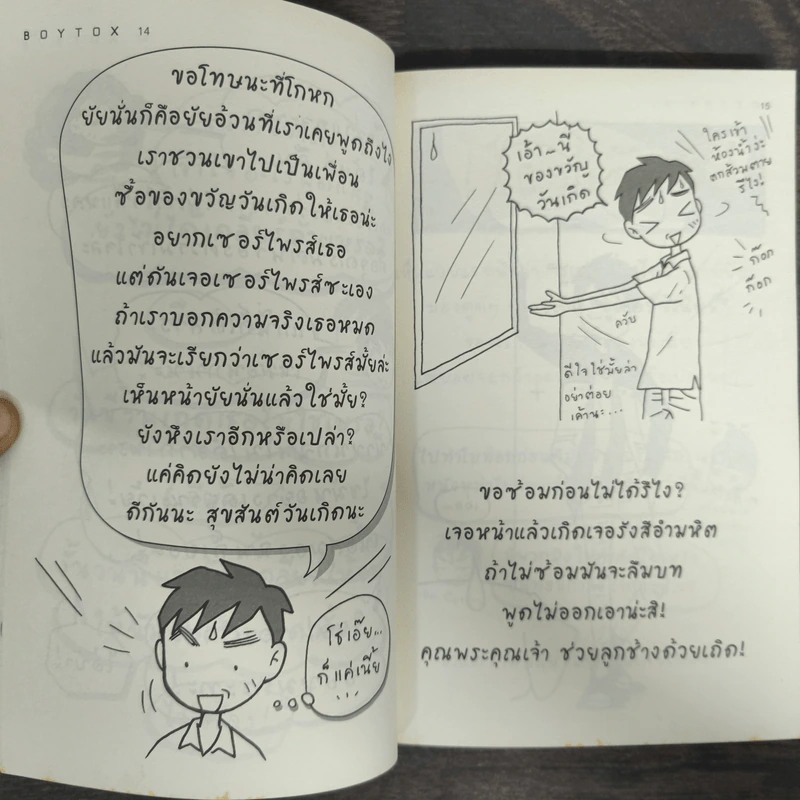 BOYTOX 14
ขอโทษนะที่โกหก
ยัยนั่นก็คือยัยอ้วนที่เราเคยพูดถึงไง
เราชวนเขาไปเป็นเพื่อน
ซื้อของขวัญวันเกิดให้เธอน่ะ
อยากเซอร์ไพรส์เธอ
แต่ดันเจอเซอร์ไพรส์ซะเอง
ถ้าเราบอกความจริงเธอหมด
แล้วมันจะเรียกว่าเซอร์ไพรส์มั้ยล่ะ
เห็นหน้ายัยนั่นแล้วใช่มั้ย?
ยังหึงเราอีกหรือเปล่า?
แค่คิดยังไม่น่าคิดเลย
ดีกันนะ สุขสันต์วันเกิดนะ
โธ่เอ๊ย...
ก็แค่เนี้ย
...
15
เอ้า...นี่
ของขวัญ
วันเกิด
ใครเข้า
ห้องน้ำวะ
ตกส้วมตาย
รึไง!
ก๊อก
ก๊อก
ควับ
ดีใจใช่มั้ยล่า
อย่าต่อย
เค้านะ...
ขอซ้อมก่อนไม่ได้รึไง?
เจอหน้าแล้วเกิดเจอรังสีอำมหิต
ถ้าไม่ซ้อมมันจะลืมบท
พูดไม่ออกเอาน่ะสิ!
คุณพระคุณเจ้า ช่วยลูกช้างด้วยเถิด!